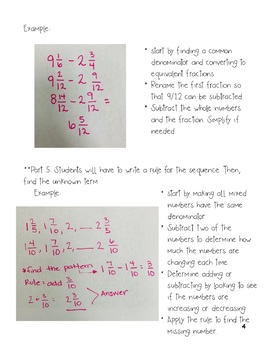 Example:
9 1/6 - 2 3/4
9 2/12 - 2 9/12
8 14/12 - 2 9/12 =
6 5/12
• start by finding a common
denominator and converting to
equivalent fractions
• Rename the first fraction so
that 9/12 can be subtracted
• Subtract the whole numbers
and the fraction. Simplify if
needed
**Part 5: Students will have to write a rule for the sequence. Then,
find the unknown term.
Example:
1 2/5, 1 7/10, 2, __ 2 3/5
1 4/10, 1 7/10, 2, __ 2 6/10
*find the pattern → 1 7/10 - 1 4/10 = 3/10
Rule: add 3/10
2 + 3/10 = 2 3/10
Answer
• start by making all mixed
numbers have the same
denominator
• Subtract two of the
numbers to determine how
much the numbers are
changing each time.
• Determine adding or
subtracting by looking to see
if the numbers are
increasing or decreasing
• Apply the rule to find the
missing number.
4